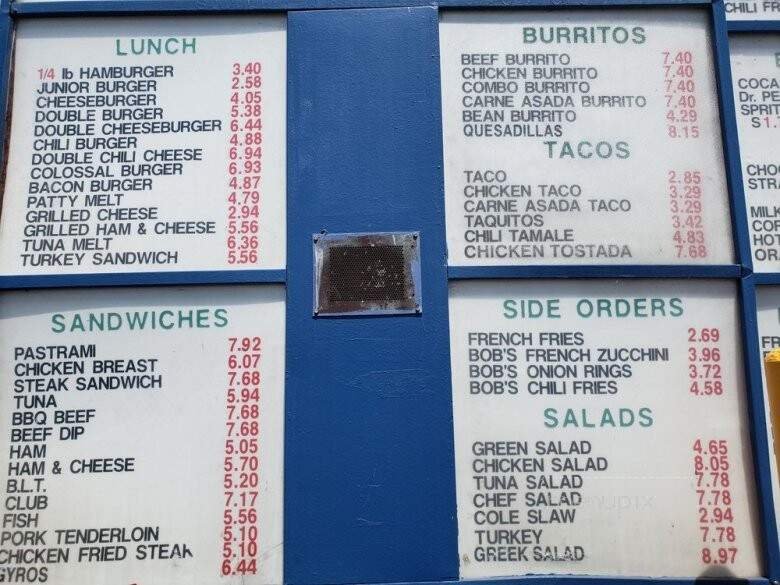 LUNCH
1/4 lb HAMBURGER 3.40
JUNIOR BURGER 2.58
CHEESEBURGER 4.05
DOUBLE BURGER 5.38
DOUBLE CHEESEBURGER 6.44
CHILI BURGER 4.88
DOUBLE CHILI CHEESE 6.94
COLOSSAL BURGER 6.93
BACON BURGER 4.87
PATTY MELT 4.79
GRILLED CHEESE 2.94
GRILLED HAM & CHEESE 5.56
TUNA MELT 6.36
TURKEY SANDWICH 5.56
SANDWICHES
PASTRAMI 7.92
CHICKEN BREAST 6.07
STEAK SANDWICH 7.68
TUNA 5.94
BBQ BEEF 7.68
BEEF DIP 7.68
HAM 5.05
HAM & CHEESE 5.70
B.L.T. 5.20
CLUB 7.17
FISH 5.56
PORK TENDERLOIN 5.10
CHICKEN FRIED STEAK 5.10
GYROS 6.44
BURRITOS
BEEF BURRITO 7.40
CHICKEN BURRITO 7.40
COMBO BURRITO 7.40
CARNE ASADA BURRITO 7.40
BEAN BURRITO 4.29
QUESADILLAS 8.15
TACOS
TACO 2.85
CHICKEN TACO 3.29
CARNE ASADA TACO 3.29
TAQUITOS 3.42
CHILI TAMALE 4.83
CHICKEN TOSTADA 7.68
SIDE ORDERS
FRENCH FRIES 2.69
BOB'S FRENCH ZUCCHINI 3.96
BOB'S ONION RINGS 3.72
BOB'S CHILI FRIES 4.58
SALADS
GREEN SALAD 4.65
CHICKEN SALAD 8.05
TUNA SALAD 7.78
CHEF SALAD 7.78
COLE SLAW 2.94
TURKEY 7.78
GREEK SALAD 8.97
CHILI FR
COCA
Dr. PE
SPRIT
S 1.
CHO
STR
MIL
COF
HOT
OR
FR